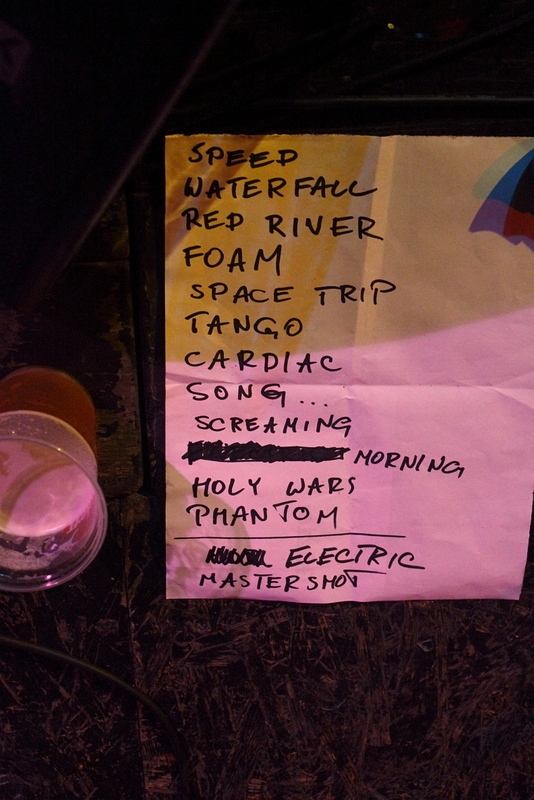 SPEED
WATERFALL
RED RIVER
FOAM
SPACE TRIP
TANGO
CARDIAC
SONG...
SCREAMING
MORNING
HOLY WARS
PHANTOM
ELECTRIC
MASTERSHOT